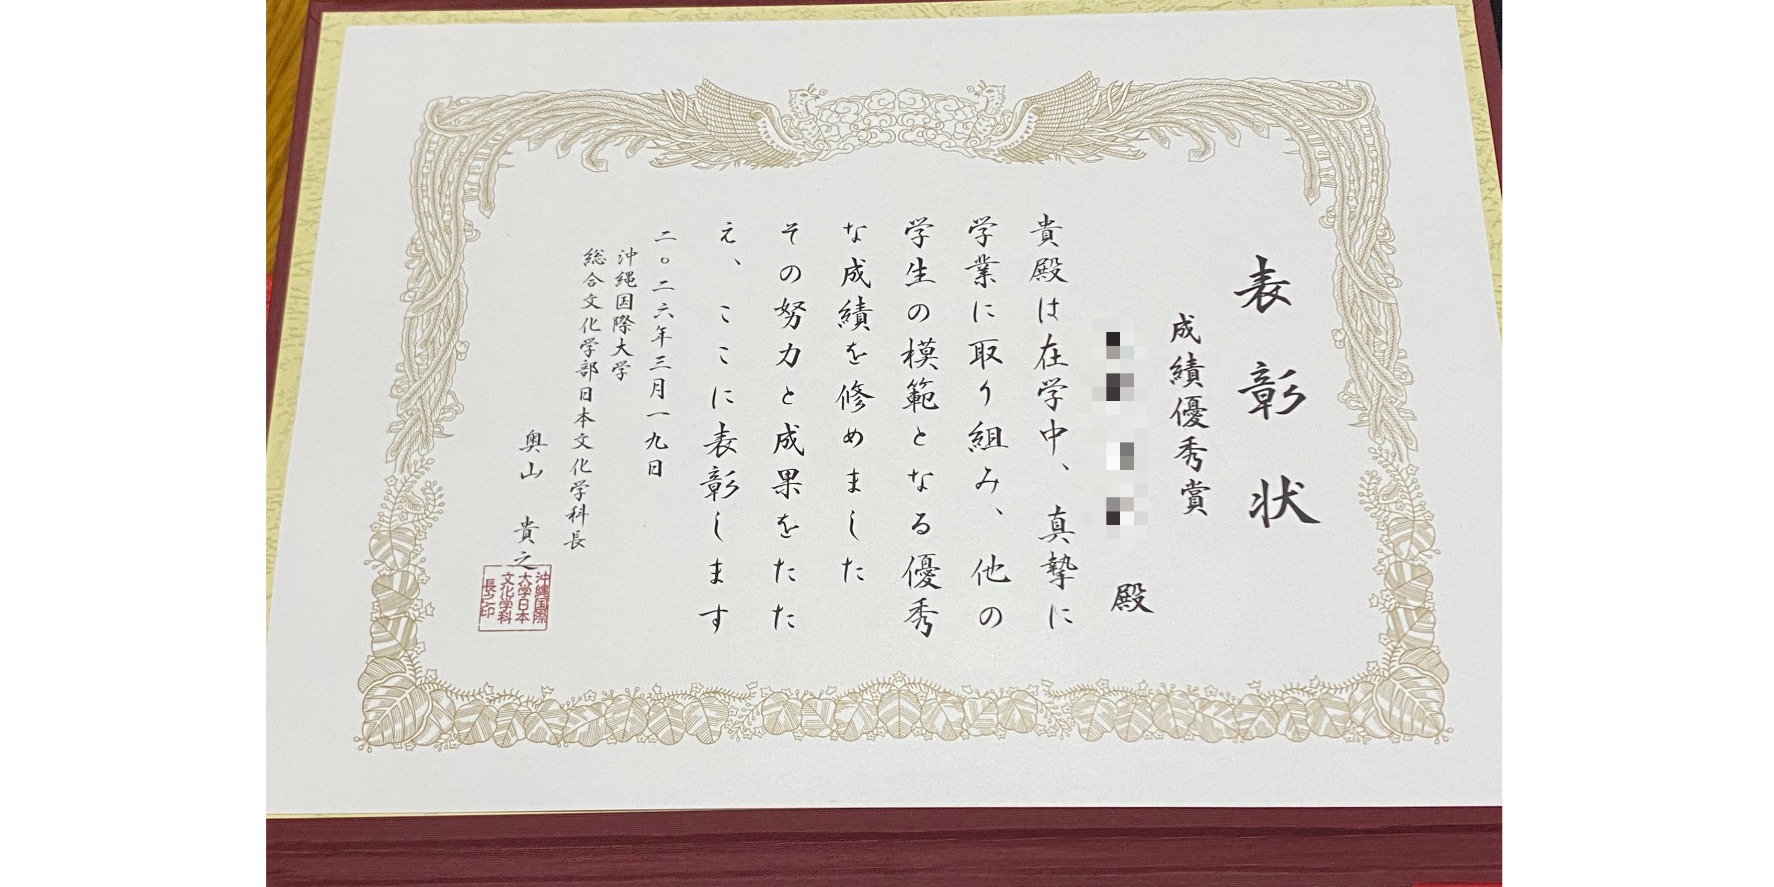 表彰状
成績優秀賞
殿
貴殿は在学中、真摯に
学業に取り組み、他の
学生の模範となる優秀
な成績を修めました
その努力と成果をたた
え、ここに表彰します
二〇二六年三月一九日
沖縄国際大学
総合文化学部日本文化学科長
奥山 貴之
沖縄国際
大学日本
文化学科
長之印